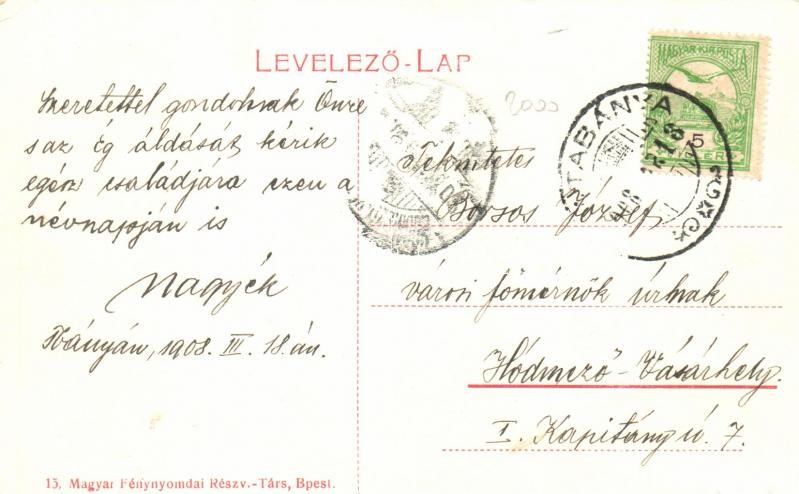 LEVELEZŐ-LAP
2000
Szeretettel gondolnak Önre
s az ég áldását kérik
egész családjára ezen a
névnapján is
Nagyék
Tbányán, 1908. III. 18.án.
MAGYAR KIR. POSTA
5
FILLÉR
TATABÁNYA
Tekintetes
Borsos József
városi főmérnök úrnak
Hódmező-Vásárhely.
I. Kapitány ú. 7.
13. Magyar Fénynyomdai Részv.-Társ, Bpest.